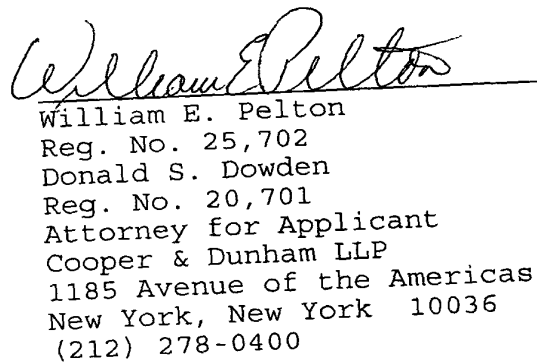 William E Pelton
William E. Pelton
Reg. No. 25,702
Donald S. Dowden
Reg. No. 20,701
Attorney for Applicant
Cooper & Dunham LLP
1185 Avenue of the Americas
New York, New York 10036
(212) 278-0400